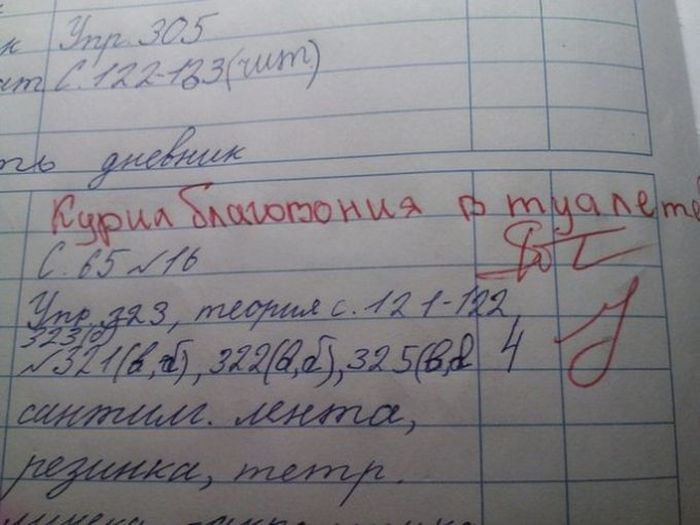 Упр. 305
С. 122-123 (чит.)
дневник
Курил благовония в туалете
С. 65 №16
Упр. 323, теория с. 121-122
323(б)
№321(в,б), 322(в,б), 325(в,
4
сантим. лента,
резинка, тетр.